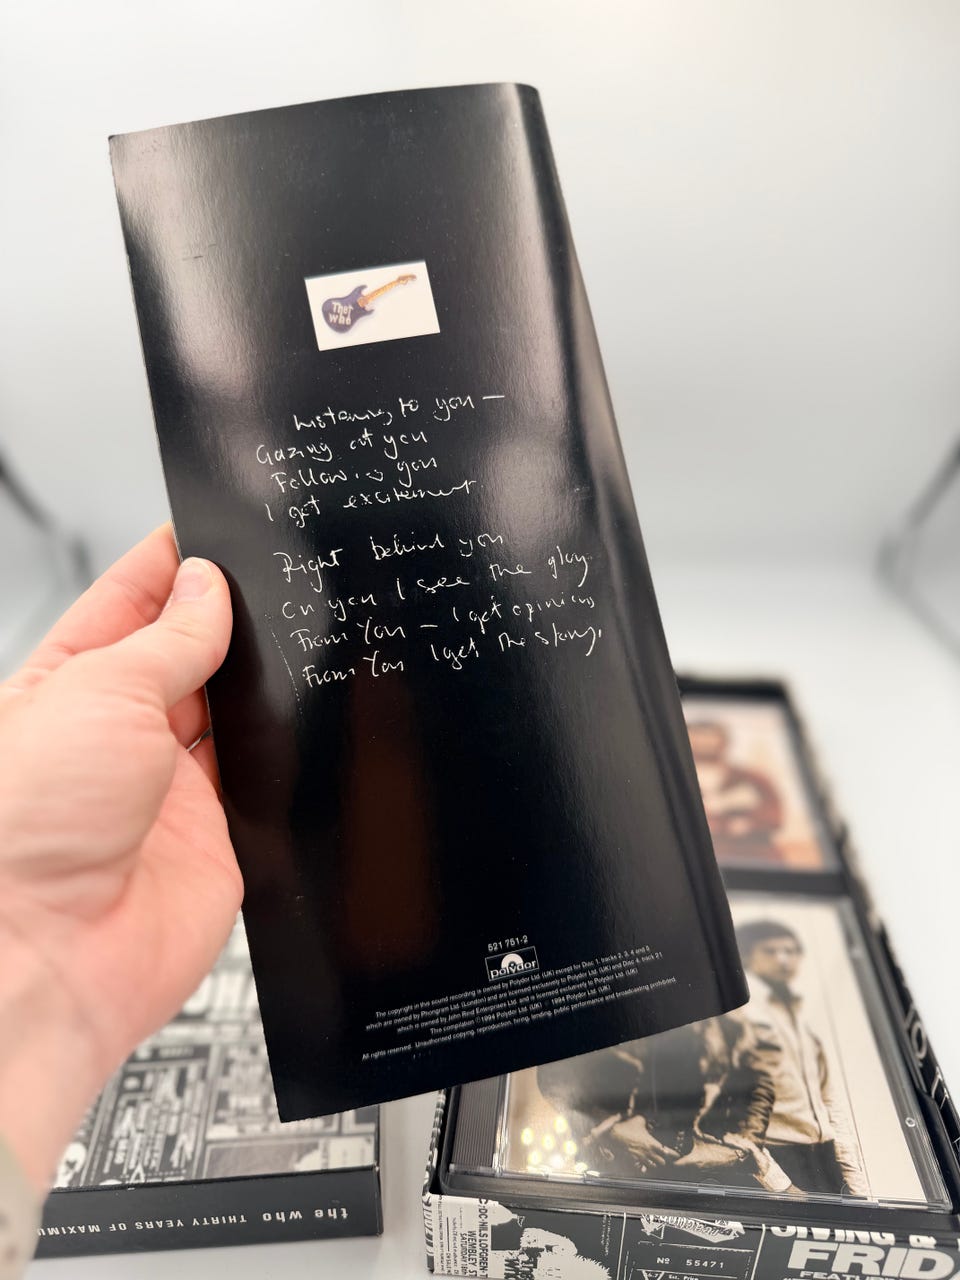 The Who
Listening to you —
Gazing at you
Following you
I get excitement
Right behind you
On you I see the glory
From You — I get opinions
From You I get the story.
521 751-2
polydor
The copyright in this sound recording is owned by Polydor Ltd. (UK) except for Disc 1, tracks 2, 3, 4 and 5
which are owned by Phonogram Ltd. (London) and are licensed exclusively to Polydor Ltd. (UK) and Disc 4, track 21
which is owned by John Reid Enterprises Ltd. and is licensed exclusively to Polydor Ltd. (UK)
The compilation ℗ 1994 Polydor Ltd. (UK) © 1994 Polydor Ltd. (UK)
All rights reserved. Unauthorised copying, reproduction, hiring, lending, public performance and broadcasting prohibited.
the who THIRTY YEARS OF MAXIMU
DC·NILS LOFGREN·T
WEMBLEY ST
SATURDAY 18th
Nº 55471
GIVING &
FRID
FEAT